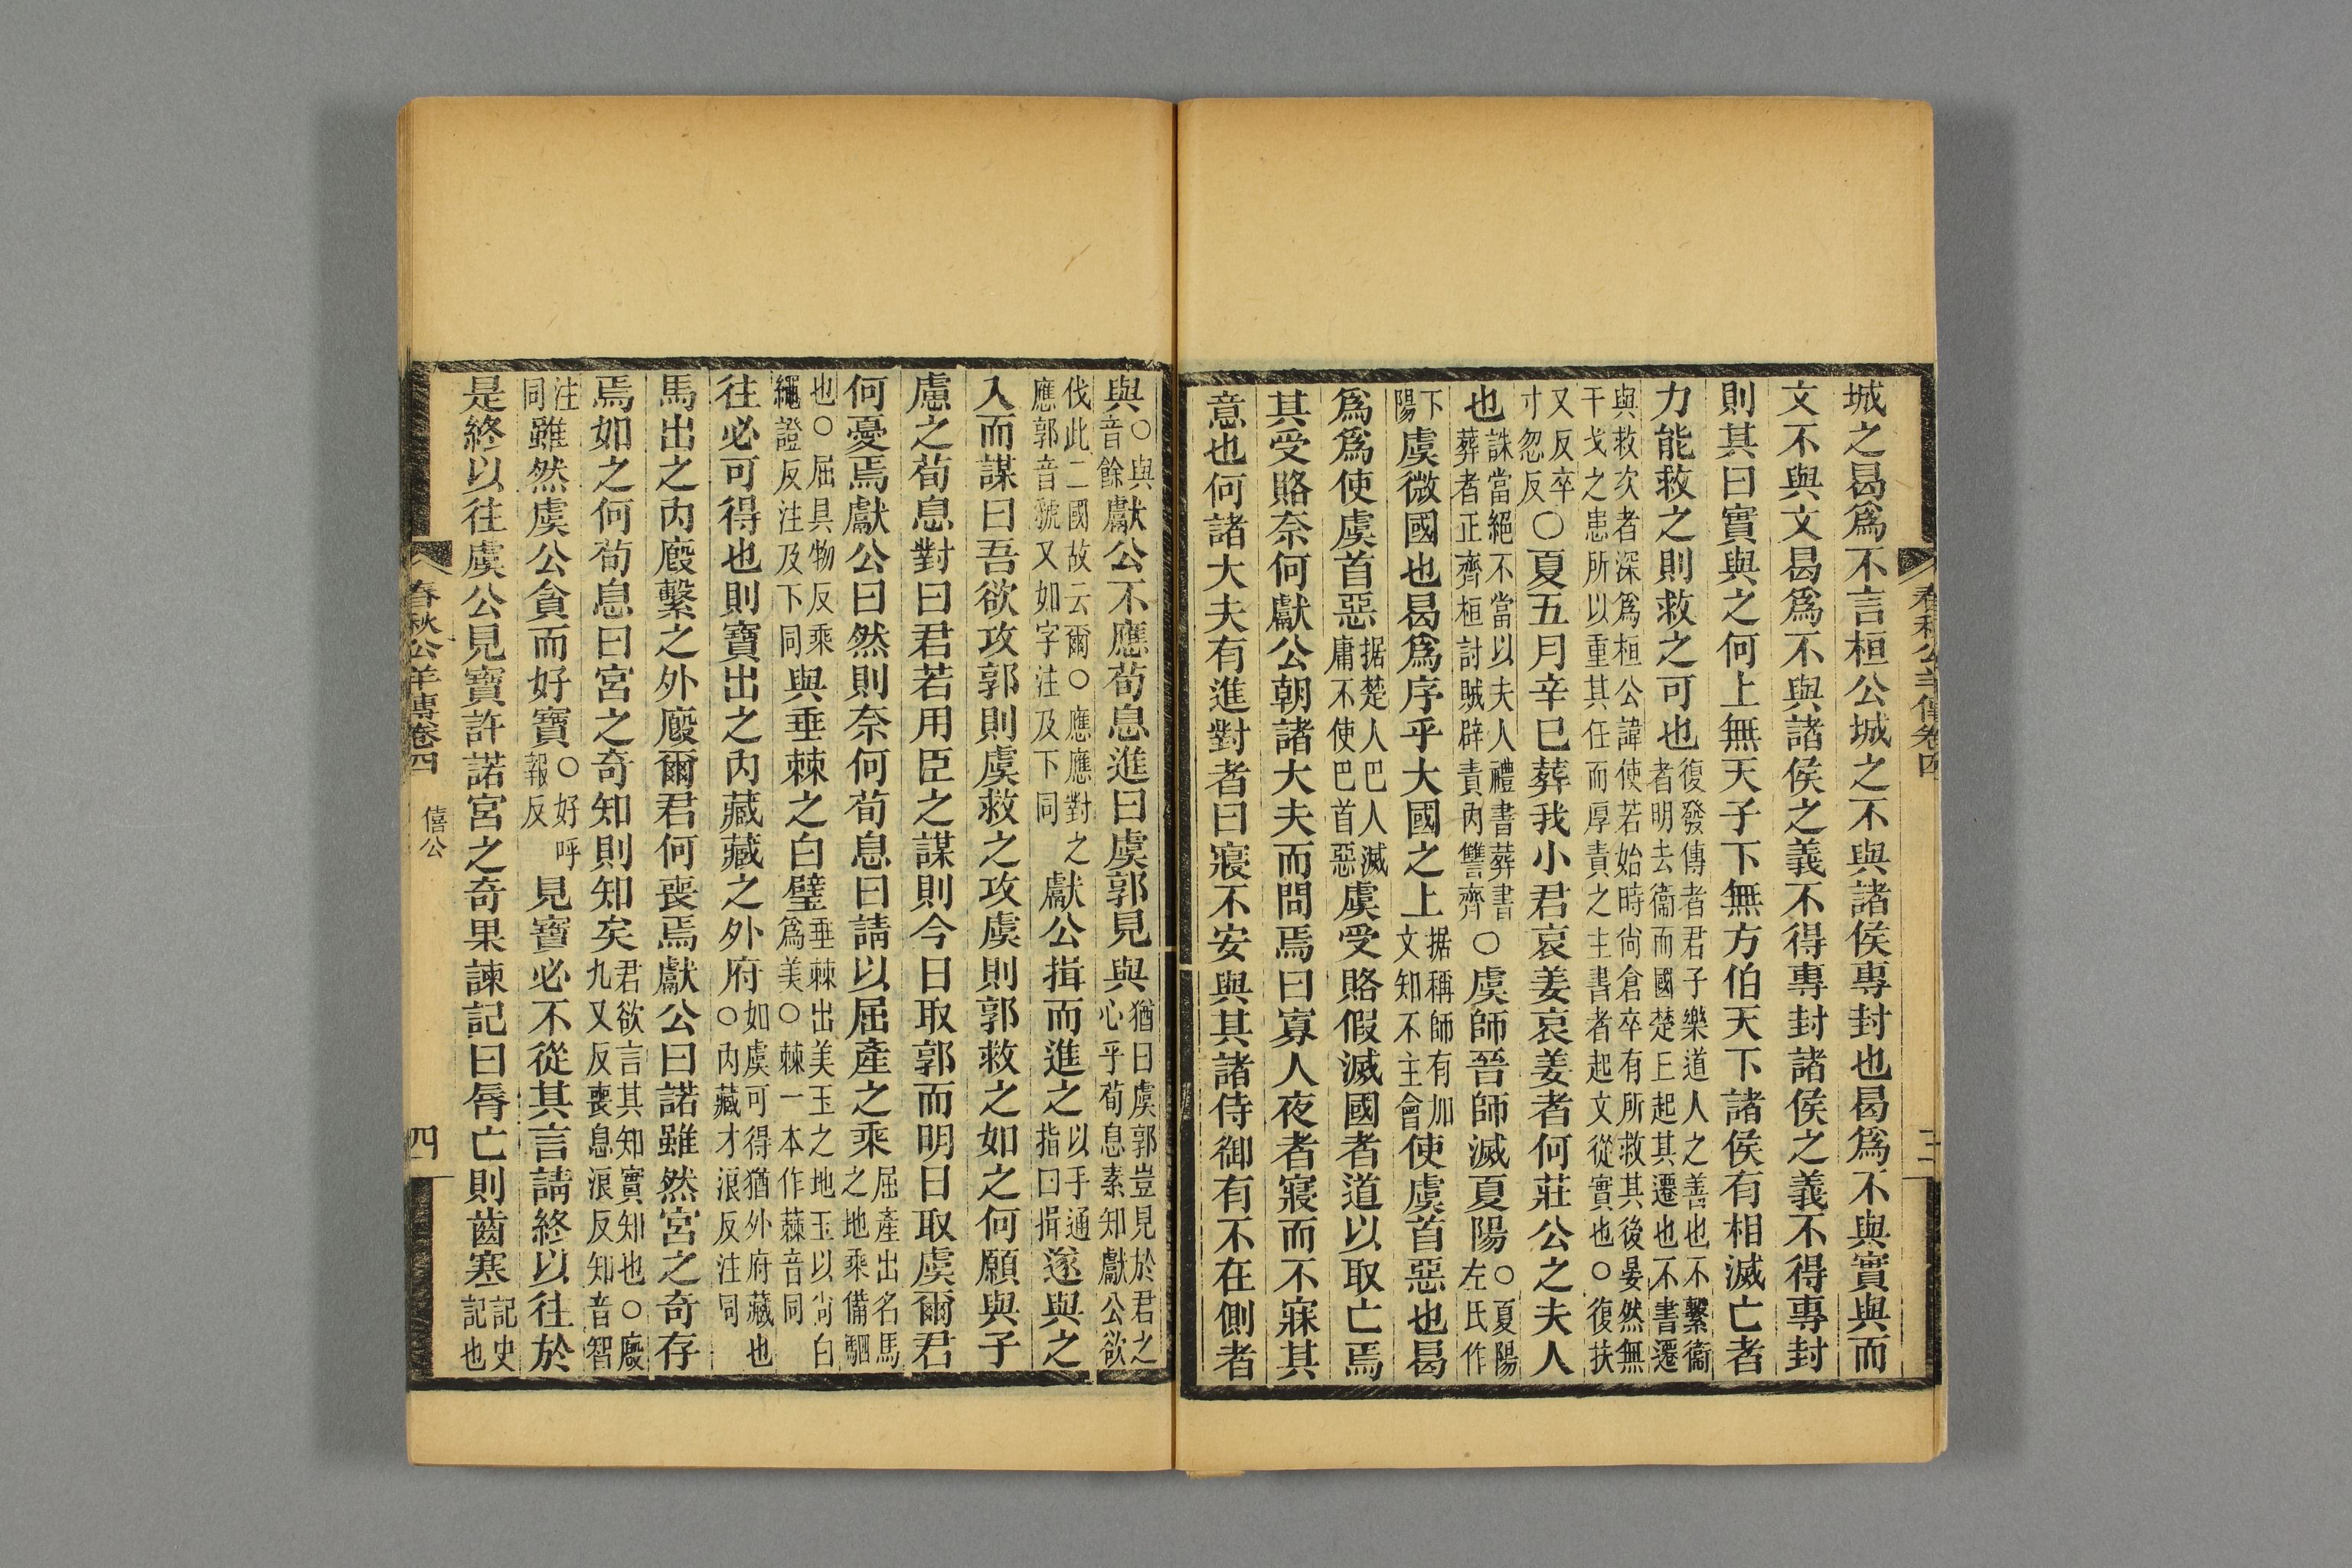 城之曷爲不言桓公城之不與諸侯專封也曷爲不與實與而
文不與文曷爲不與諸侯之義不得專封諸侯之義不得專封
則其曰實與之何上無天子下無方伯天下諸侯有相滅亡者
力能救之則救之可也復發傳者君子樂道人之善也不繫衞者明去衞而國楚丘起其遷也不書遷
與救次者深爲桓公諱使若始時尙倉卒有所救其後晏然無干戈之患所以重其任而厚責之主書者起文從實也○復扶
又反卒寸忽反○夏五月辛巳葬我小君哀姜哀姜者何莊公之夫人
也誅當絕不當以夫人禮書葬書葬者正齊桓討賊辟責內讐齊○虞師晉師滅夏陽○夏陽左氏作
下陽虞微國也曷爲序乎大國之上据稱師有加文知不主會使虞首惡也曷
爲爲使虞首惡据楚人巴人滅庸不使巴首惡虞受賂假滅國者道以取亡焉
其受賂奈何獻公朝諸大夫而問焉曰寡人夜者寢而不寐其
意也何諸大夫有進對者曰寢不安與其諸侍御有不在側者
與○與音餘獻公不應荀息進曰虞郭見與猶曰虞郭豈見於君之心乎荀息素知獻公欲
伐此二國故云爾○應應對之應郭音虢又如字注及下同獻公揖而進之以手通指曰揖遂與之
入而謀曰吾欲攻郭則虞救之攻虞則郭救之如之何願與子
慮之荀息對曰君若用臣之謀則今日取郭而明日取虞爾君
何憂焉獻公曰然則奈何荀息曰請以屈產之乘屈產出名馬之地乘備駟
也○屈具物反乘繩證反注及下同與垂棘之白璧垂棘出美玉之地玉以尙白爲美○棘一本作蕀音同
往必可得也則寶出之內藏藏之外府如虞可得猶外府藏也○內藏才浪反注同
馬出之內廄繫之外廄爾君何喪焉獻公曰諾雖然宮之奇存
焉如之何荀息曰宮之奇知則知矣君欲言其知實知也○廄九又反喪息浪反知音智
注同雖然虞公貪而好寶○好呼報反見寶必不從其言請終以往於
是終以往虞公見寶許諾宮之奇果諫記曰脣亡則齒寒記史記也
春秋公羊傳卷四
僖公
四